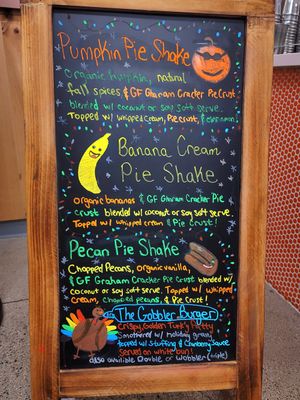 Pumpkin Pie Shake
Organic Pumpkin, natural
fall spices & GF Graham Cracker Pie Crust
blended w/ coconut or soy soft serve.
Topped w/ whipped cream, Pie crust, & cinnamon!
Banana Cream
Pie Shake
Organic bananas & GF Graham Cracker Pie
Crust blended w/ coconut or soy soft serve.
Topped w/ whipped cream & Pie Crust!
Pecan Pie Shake
Chopped Pecans, organic vanilla,
& GF Graham Cracker Pie Crust blended w/
coconut or soy soft serve. Topped w/ whipped
cream, chopped pecans, & Pie Crust!
The Gobbler Burger!
Crispy, Golden Turk'y Patty
Smothered w/ Holiday gravy,
topped w/ stuffing & Cranberry Sauce
Served on white bun!
also available Double or Wobbler (triple)